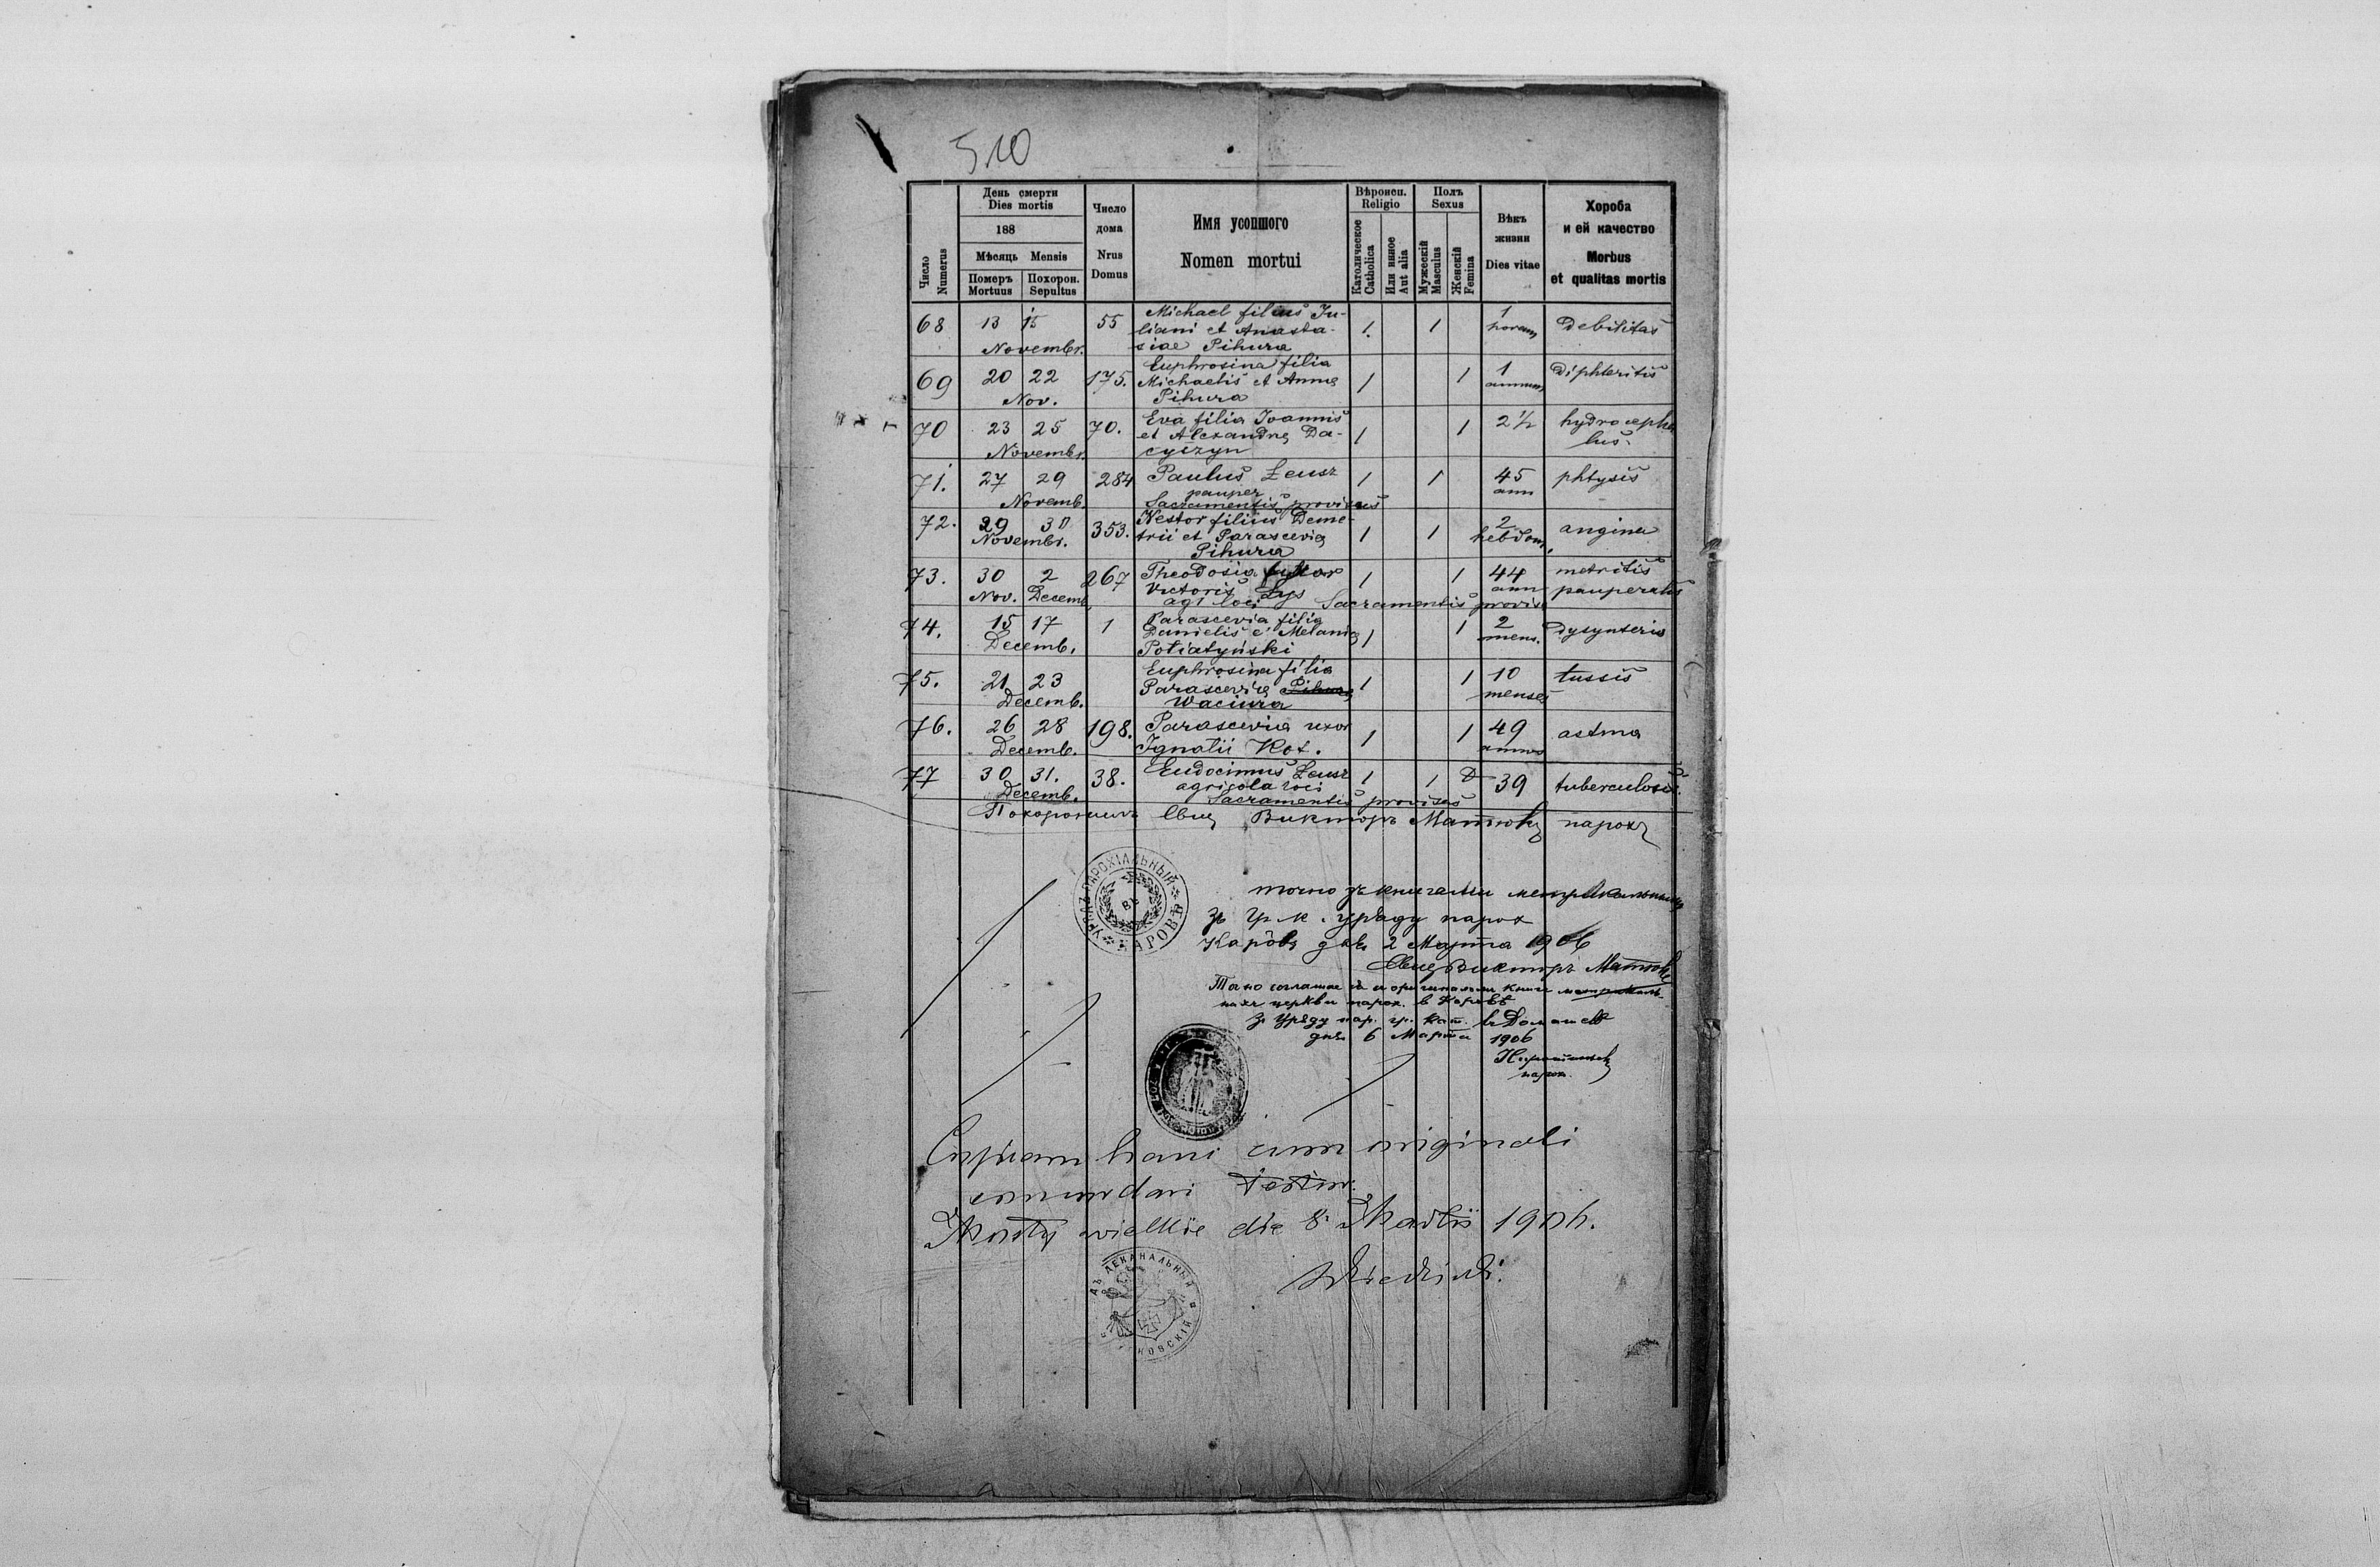 510
День смерти
Dies mortis
188
Мѣсяць Mensis
Число
Numerus
Померъ
Mortuus
Похорон.
Sepultus
Число
дома
Nrus
Domus
Имя усопшого
Nomen mortui
Вѣроисп.
Religio
Католическое
Catholica
Или инное
Aut alia
Полъ
Sexus
Мужескій
Masculus
Женскій
Femina
Вѣкъ
жизни
Dies vitae
Хороба
и ей качество
Morbus
et qualitas mortis
68 13 15 Novembr. 55 Michael filius Ju-
liani et Anasta-
siae Pihura 1 1 1 horam debilitas
69 20 22 Nov. 175. Euphrosina filia
Michaelis et Annae
Pihura 1 1 1 annum diphteritis
70 23 25 Novembr. 70. Eva filia Joannis
et Alexandrae Da-
cyszyn 1 1 2½ hydrocepha
lus.
71. 27 29 Novemb. 284 Paulus Leusz
pauper
Sacramentis provisus 1 1 45 ann phtysis
72. 29 30 Novembr. 353. Nestor filius Deme-
trii et Parasceviae
Pihura 1 1 2 hebdom. angina
73. 30 Nov. 2 Decemb. 267 Theodosia uxor
Victoris Lys
agr loci Sacramentis provisa 1 1 44 ann metritis
74. 15 17 Decemb. 1 Parascevia filia
Danielis et Melaniae
Potiatyński 1 1 2 mens. dysynteria
75. 21 23 Decemb. Euphrosina filia
Parasceviae Pihura
Waciura 1 1 10 menses tussis
76. 26 28 Decemb. 198. Parascevia uxor
Ignatii Kot. 1 1 49 annos astma
77 30 31. Decemb. 38. Eudocimus Leusz
agricola loci
Sacramentis provisus 1 1 39 tuberculosis.
Похоронилъ Викторъ Матюкъ парохъ
УРЯДЪ ПАРОХІАЛЬНЫЙ
ВЪ
КАРОВѢ
точно зъ книгами метрикальными
Зъ гр. к. уряду парох
Карôвъ дня 2 Марта 1906
Викторъ Матюкъ
церкви парох. в Каровѣ
Зъ Уряду пар. гр. кат. въ
дня 6 Марта 1906
парох.
Copiam hanc cum originali
Mosty wielkie die 8 Martii 1906.
ДЕКАНАЛЬНЫЙ